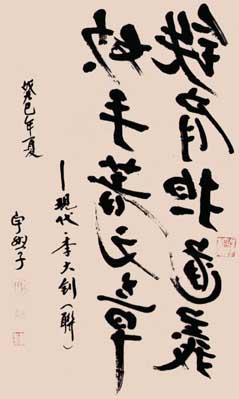 铁肩担道義
妙手著文章
—現代·李大钊(聯)
癸巳年夏
宇 子